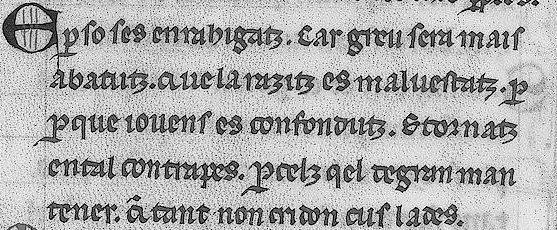 E ꝑ so ses enrabigatz. Car greu sera mais
abatutz. que la razitz es maluestatz. ꝑ
ꝑque iouens es confondutz. & tornatz
ental contrapes. ꝑcelz qel tegran man
tener. cã tant non cridon cus lades.